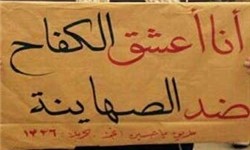 أنا أعشق الكفاح
ضد الصهاينة
١٤٣٦